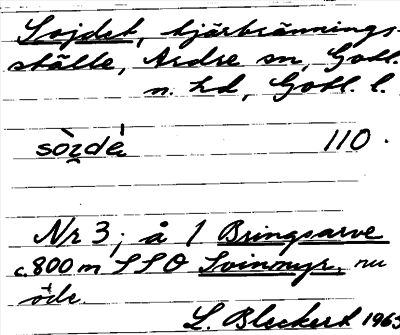 Sojdet, tjärbrännings-
ställe, Ardre sn, Gotl.
n. hd, Gotl. l.
sòzdé 110.
Nr 3; å 1 Bringsarve
c. 800 m SSO Svinmyr, nu
öde.
L. Bleckert 1963